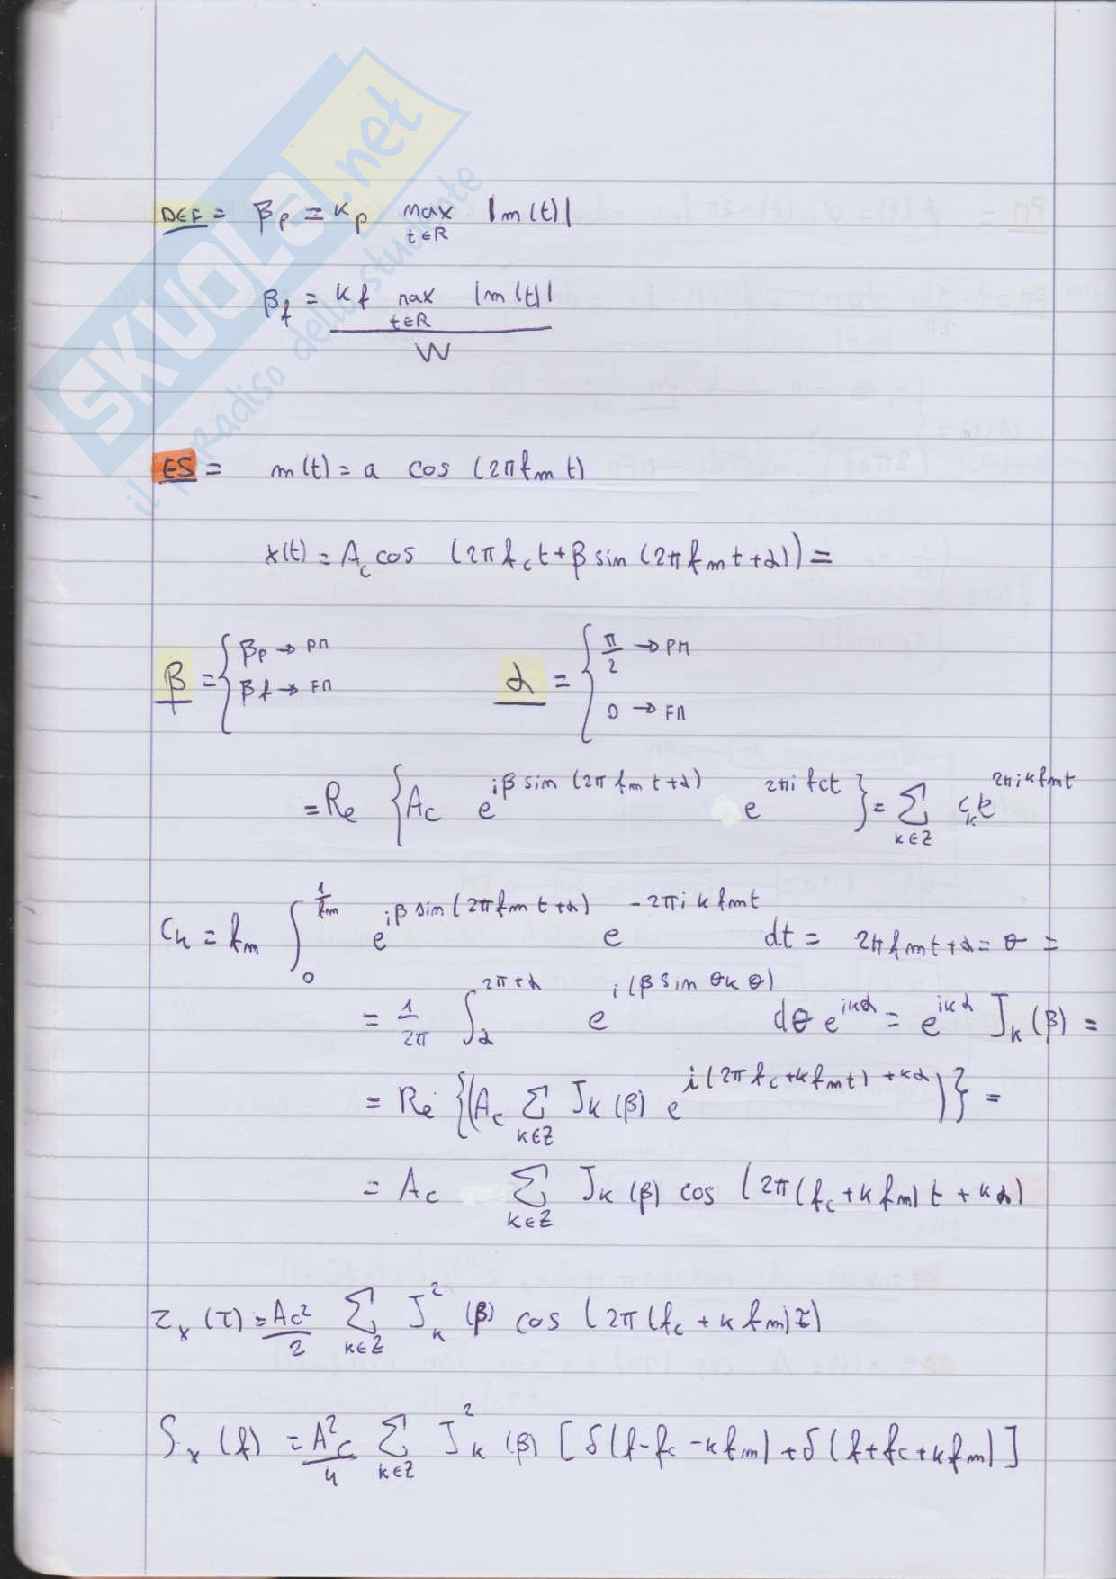 SKUOLA.net
il paradiso dello studente
DEF = βp = Kp max |m(t)|
t∈R
βf = Kf max |m(t)|
t∈R
W
ES = m(t) = a cos (2πfm t)
x(t) = Ac cos (2πfc t + β sin (2πfm t + α)) =
β = { βp → PM
βf → FM
α = { π/2 → PM
0 → FM
= Re { Ac e^{iβ sin (2πfm t + α)} e^{2πi fc t} } = Σ_{k∈Z} ck e^{2πi k fm t}
Ck = fm ∫_0^{1/fm} e^{iβ sin (2πfm t + α)} e^{-2πi k fm t} dt = 2πfm t + α = θ =
= 1/2π ∫_α^{2π+α} e^{i(β sin θ k θ)} dθ e^{ikα} = e^{ikα} Jk (β) =
= Re {(Ac Σ_{k∈Z} Jk (β) e^{i(2πfc + kfm t) + kα})} =
= Ac Σ_{k∈Z} Jk (β) cos (2π(fc + k fm) t + kα)
τx (τ) = Ac²/2 Σ_{k∈Z} J²k (β) cos (2π(fc + k fm)τ)
Sx (f) = A²c/4 Σ_{k∈Z} J²k (β) [δ(f - fc - k fm) + δ(f + fc + k fm)]